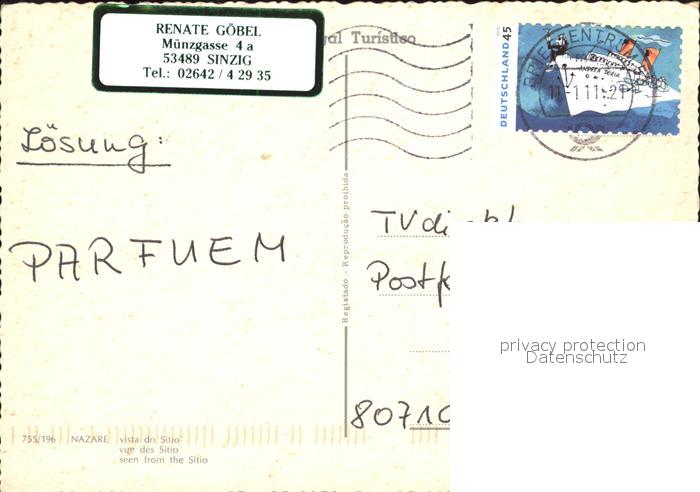 RENATE GÖBEL
Münzgasse 4 a
53489 SINZIG
Tel.: 02642 / 4 29 35
gal Turístico
DEUTSCHLAND 45
BRIEFZENTRUM
11-1.11.-21
Lösung:
PARFUEM
TVdi
Postf
80710
Registado - Reprodução proibida
privacy protection
Datenschutz
755/196 NAZARE vista do Sítio
vue dès Sítio
seen from the Sítio